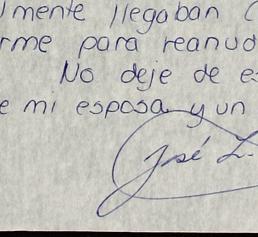 lmente llegaban (
rme para reanud
No deje de es
e mi esposa y un
José L.